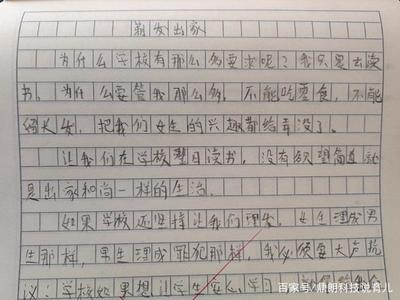 剃发出家
为什么学校有那么多要求呢？我只是去读
书。为什么要管我那么多。不能吃零食，不能
留长发，把我们女生的兴趣都给弄没了。
让我们在学校整日读书，没有欲望简直就
是出家和尚一样的生活。
如果学校还坚持让我们理发。女生理成男
生那样，男生理成罪犯那样，我必须要大声抗
议：学校如果想让学生安心学习
百家号/鼎朗科技说育儿